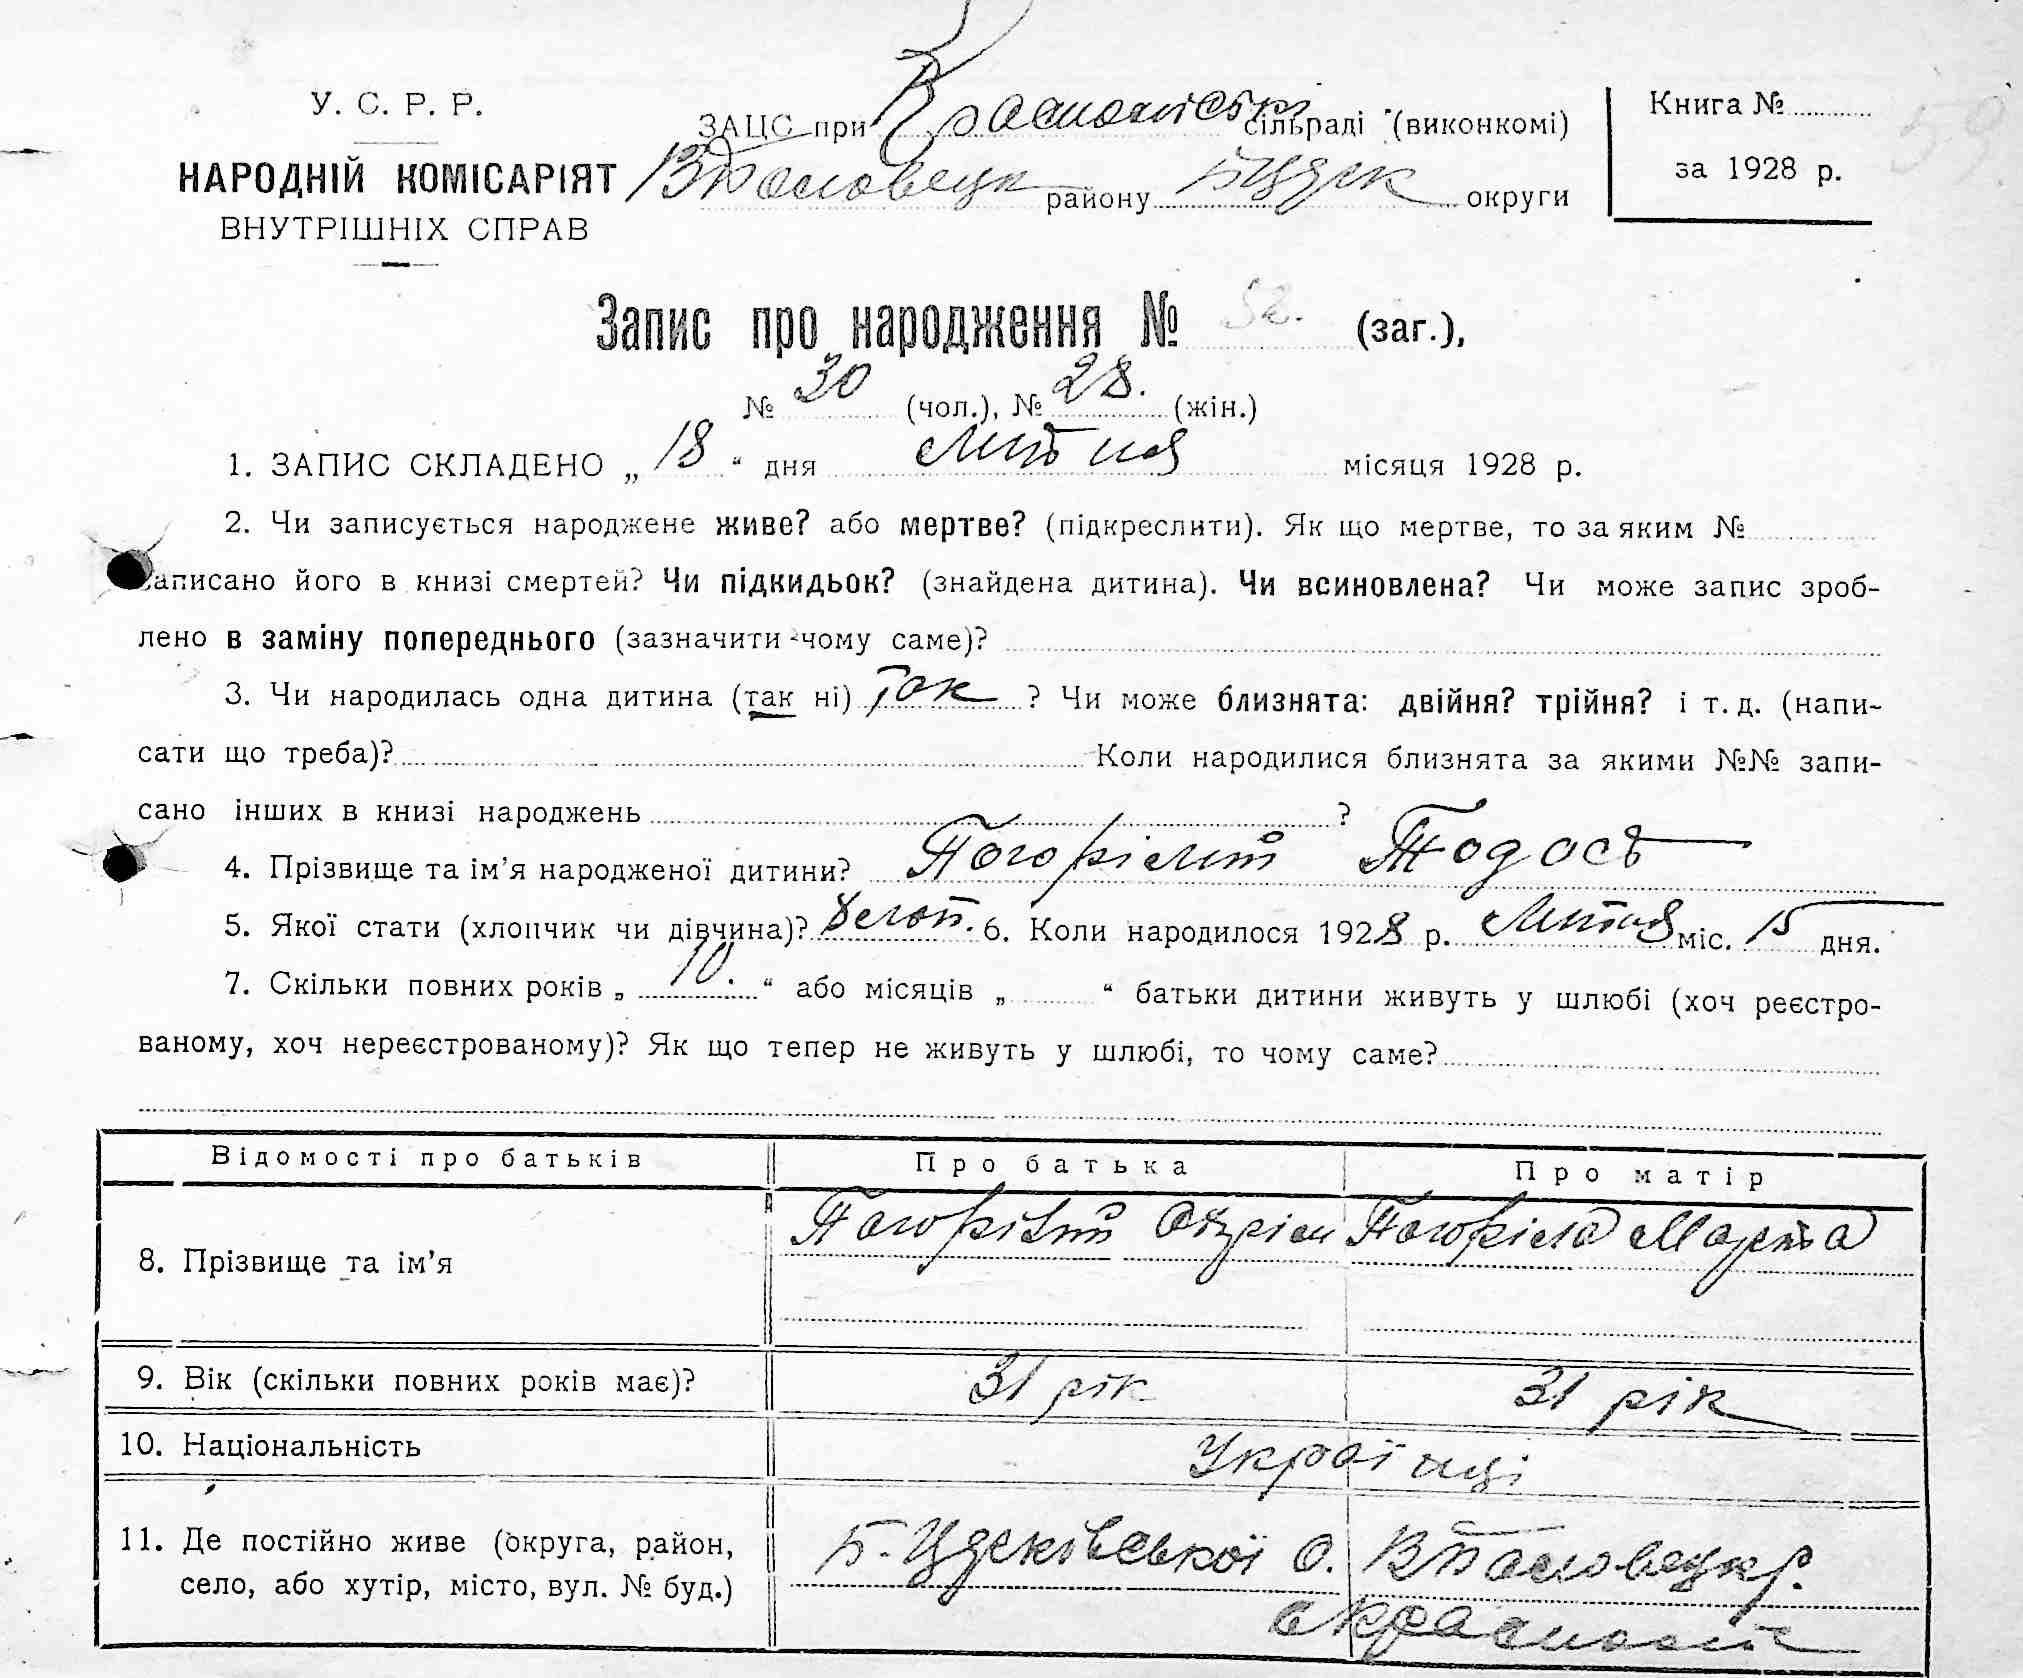 У. С. Р. Р.
НАРОДНІЙ КОМІСАРІЯТ
ВНУТРІШНІХ СПРАВ
ЗАЦС при сільраді (виконкомі)
району Б Цдек округи
Книга №
за 1928 р.
59
Запис про народження № 52. (заг.),
№ 30 (чол.), № 28. (жін.)
1. ЗАПИС СКЛАДЕНО „ 18 “ дня Липня місяця 1928 р.
2. Чи записується народжене живе? або мертве? (підкреслити). Як що мертве, то за яким №
записано його в книзі смертей? Чи підкидьок? (знайдена дитина). Чи всиновлена? Чи може запис зроб-
лено в заміну попереднього (зазначити чому саме)?
3. Чи народилась одна дитина (так ні) Так ? Чи може близнята: двійня? трійня? і т. д. (напи-
сати що треба)? Коли народилися близнята за якими №№ запи-
сано інших в книзі народжень ?
4. Прізвище та ім’я народженої дитини? Погорілий Тодось
5. Якої стати (хлопчик чи дівчина)? 6. Коли народилося 1928 р. Липня міс. 15 дня.
7. Скільки повних років „ 10. “ або місяців „ “ батьки дитини живуть у шлюбі (хоч реєстро-
ваному, хоч нереєстрованому)? Як що тепер не живуть у шлюбі, то чому саме?
Відомості про батьків Про батька Про матір
8. Прізвище та ім’я Погорілий Погоріла Марта
9. Вік (скільки повних років має)? 31 рік 31 рік
10. Національність Українці
11. Де постійно живе (округа, район, Б. Цдеківської О.
село, або хутір, місто, вул. № буд.)